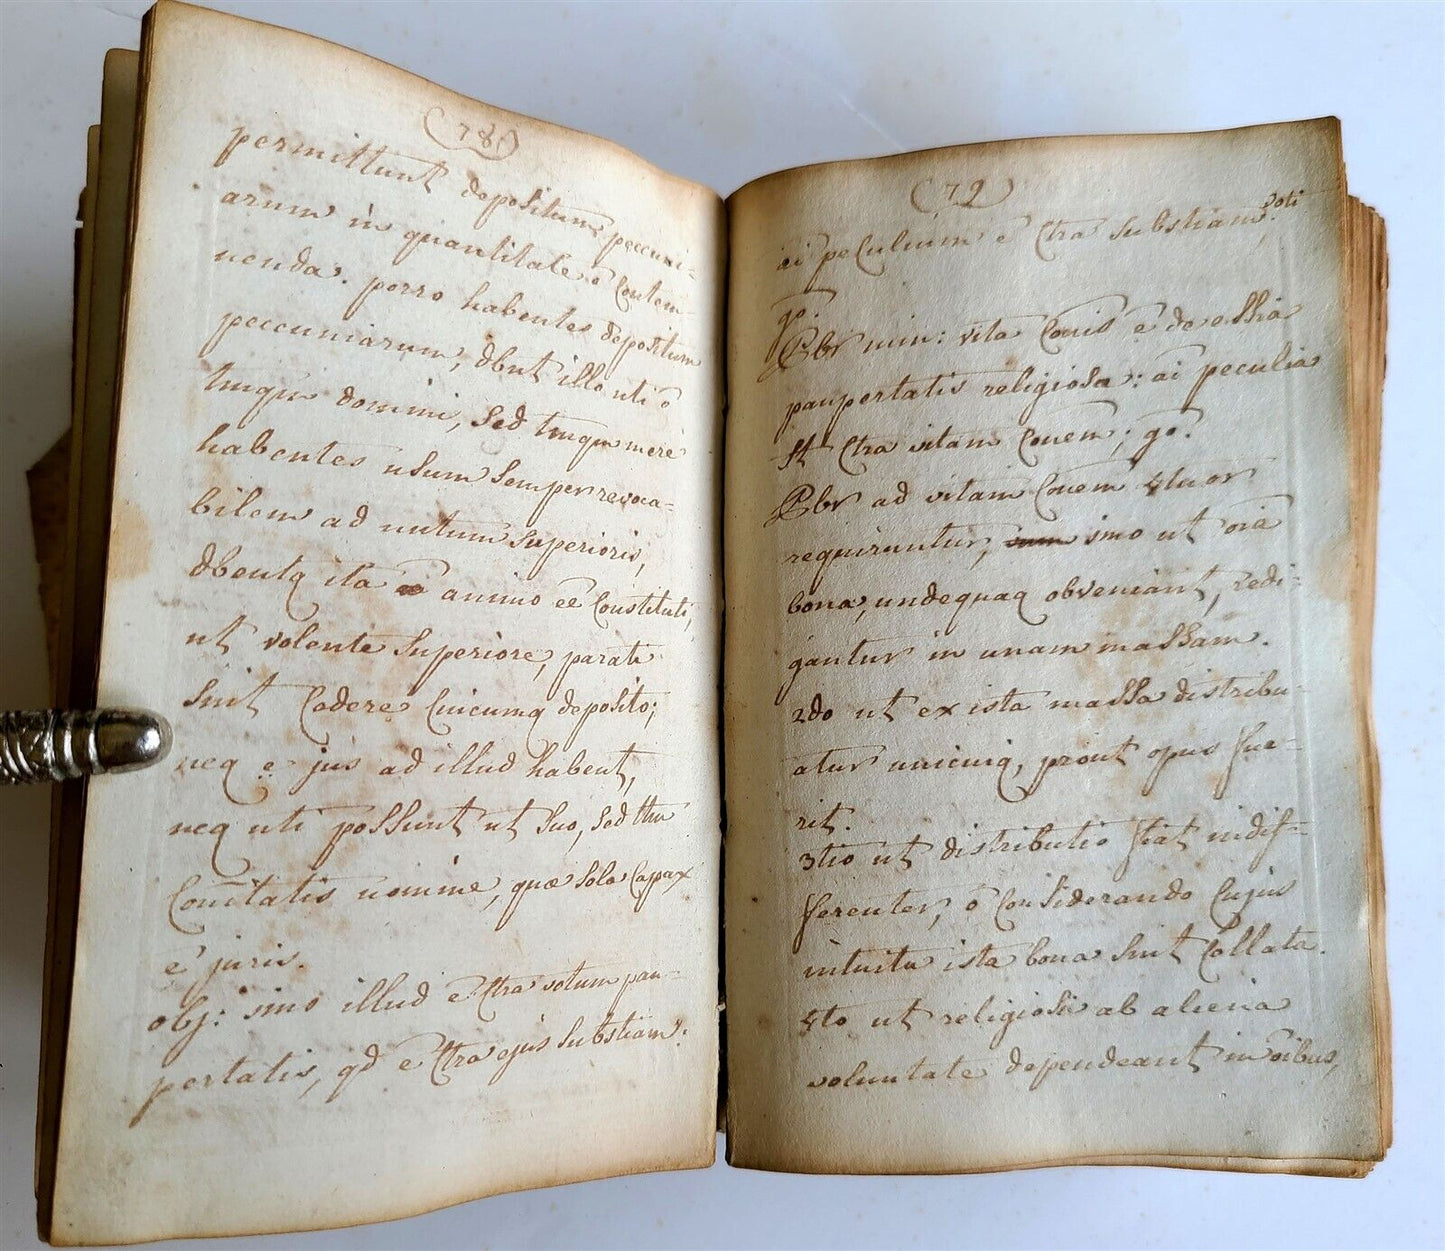 (78)
permittunt depositum peccuni=
arum in quantitate õ contem=
nenda. porro habentes depositum
peccuniarum, dbnt illo uti õ
tnqm domini, sed tnqm mere
habentes usum semper revoca=
bilem ad nutum superioris,
dbentq ita animo ee constituti,
ut volente superiore, parati
sint cadere cuicumq deposito;
neq e jus ad illud habent,
neq uti possunt ut suo, sed ttm
Coñitatis nomine, quæ sola capax
ẽ juris.
obj: imo illud ẽ ctra votum pau=
pertatis, qd ẽ ctra ejus substiam:
(79)
ai peculium ẽ ctra substiam voti
go.
Pbr min: vita Coñis ẽ de essia
paupertatis religiosa: ai peculia
st ctra vitam Coñem; go.
Pbr ad vitam Coñem 4tuor
requiruntur, imo ut oia
bona, undequaq obveniant, redi=
gantur in unam massam.
2do ut ex ista massa distribu=
atur unicuiq, prout opus fue=
rit.
3tio ut distributio fiat indif=
ferenter, õ considerando cujus
intuitu ista bona sint collata.
4to ut religiosi ab aliena
voluntate dependeant in oibus,